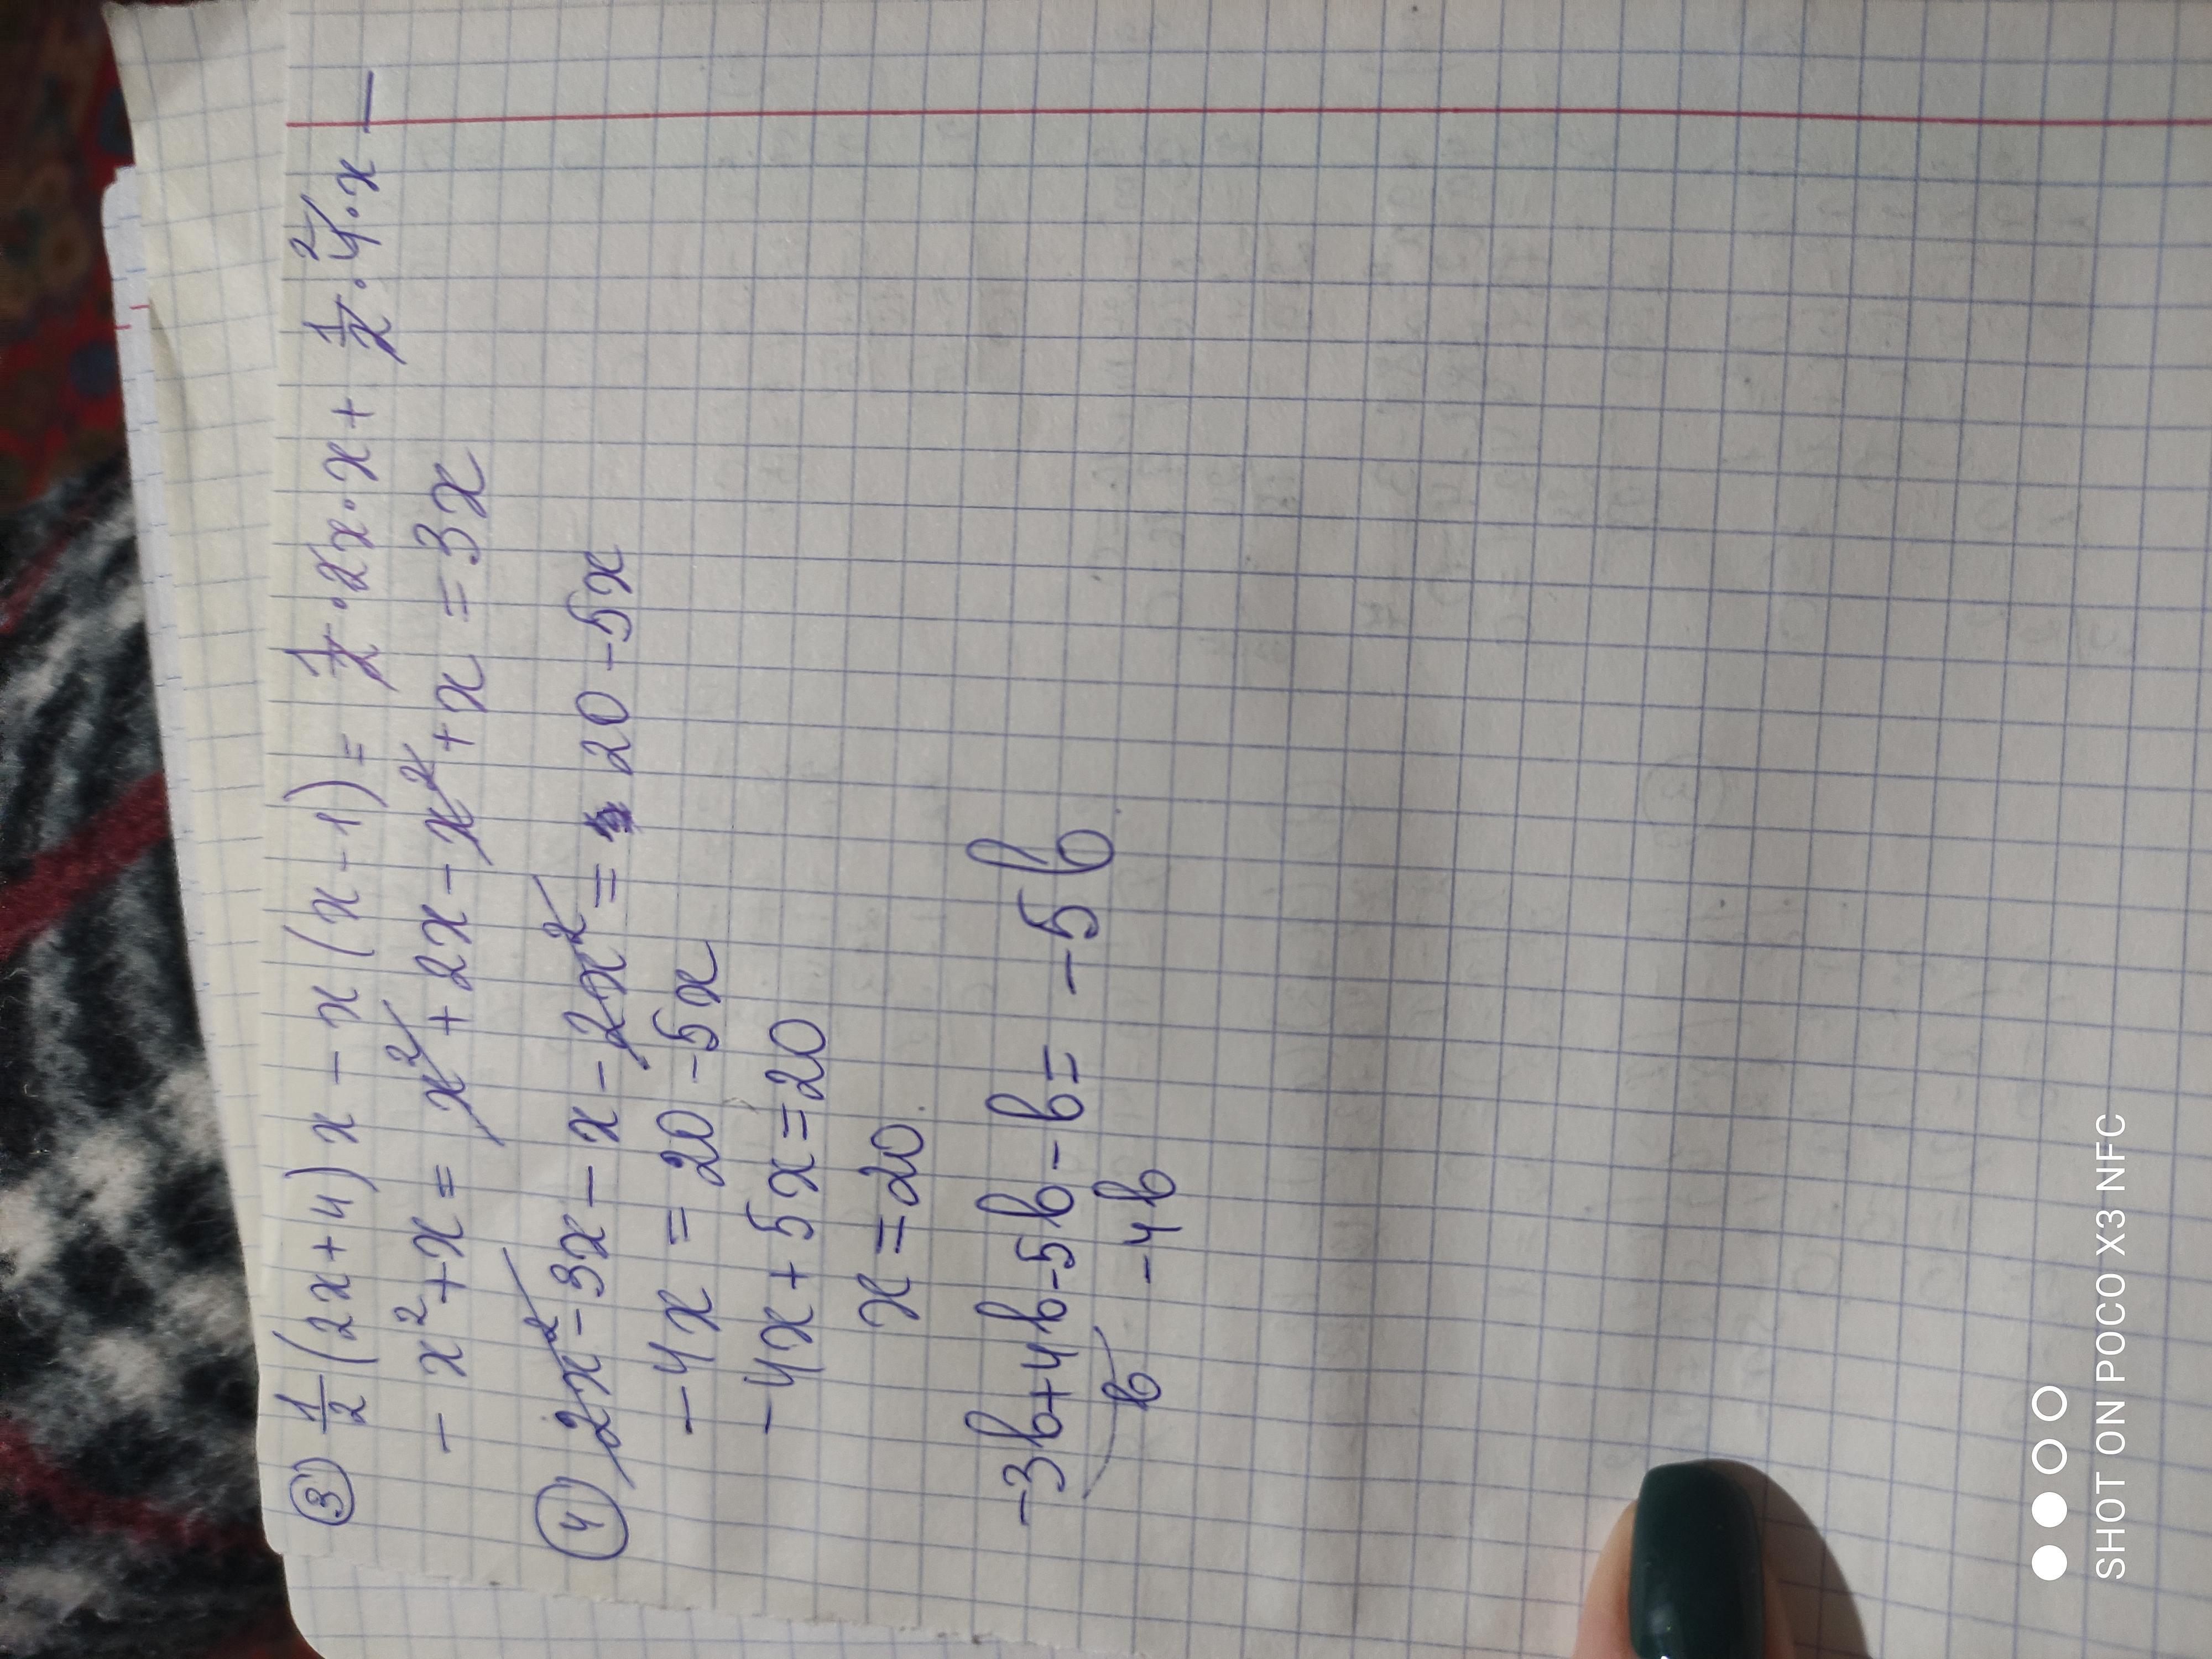 ③ 1/2 (2x+4)x - x(x-1) = 1/2 · 2x · x + 1/2 · 4² · x -
- x² + x = x² + 2x - x² + x = 3x
④ 2x² - 3x - x - 2x² = 20 - 5x
-4x = 20 - 5x
-4x + 5x = 20
x = 20
-3b+4b-5b-b= -5b
b -4b
SHOT ON POCO X3 NFC